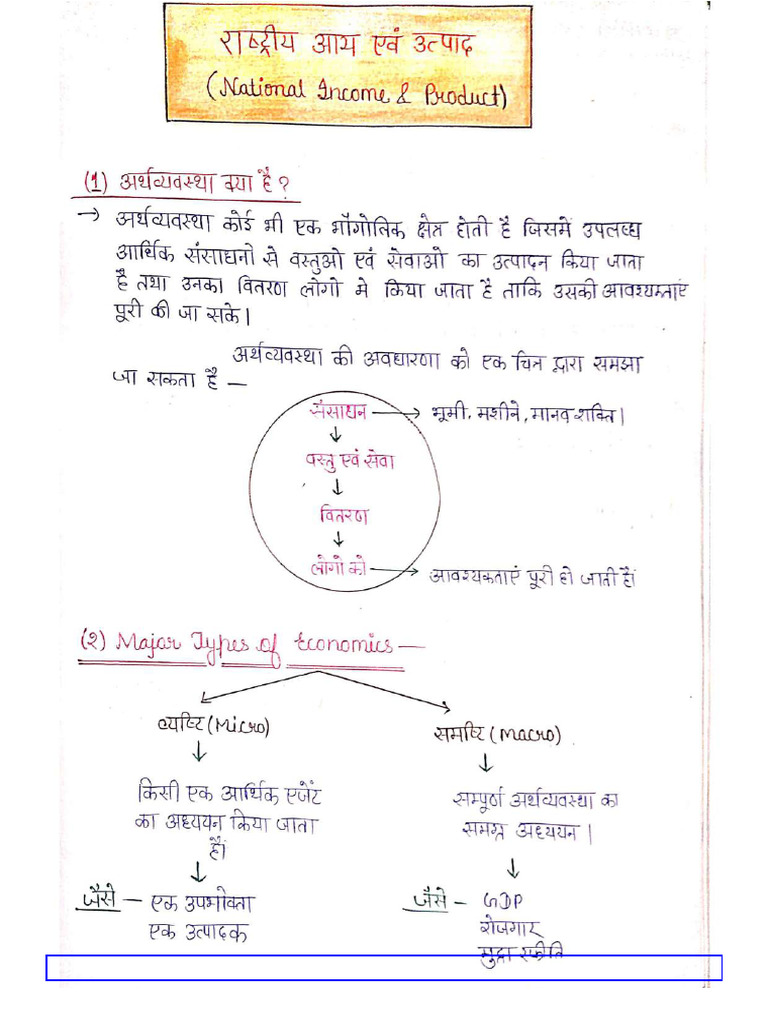 राष्ट्रीय आय एवं उत्पाद
(National Income & Product)
(1) अर्थव्यवस्था क्या है?
→ अर्थव्यवस्था कोई भी एक भौगोलिक क्षेत्र होती है जिसमें उपलब्ध
आर्थिक संसाधनो से वस्तुओ एवं सेवाओ का उत्पादन किया जाता
है तथा उनका वितरण लोगो मे किया जाता है ताकि उसकी आवश्यक्ताएं
पूरी की जा सके।
अर्थव्यवस्था की अवधारणा को एक चित्र द्वारा समझा
जा सकता है —
संसाधन → भूमी, मशीने, मानव शक्ति।
↓
वस्तु एवं सेवा
↓
वितरण
↓
लोगो को → आवश्यकताएं पूरी हो जाती है।
(2) Major Types of Economics —
व्यष्टि (Micro)
समष्टि (Macro)
↓
↓
किसी एक आर्थिक एजेंट
का अध्ययन किया जाता
है।
सम्पूर्ण अर्थव्यवस्था का
समग्र अध्ययन।
↓
↓
जैसे — एक उपभोक्ता
एक उत्पादक
जैसे - GDP
रोजगार
मुद्रा स्फीति